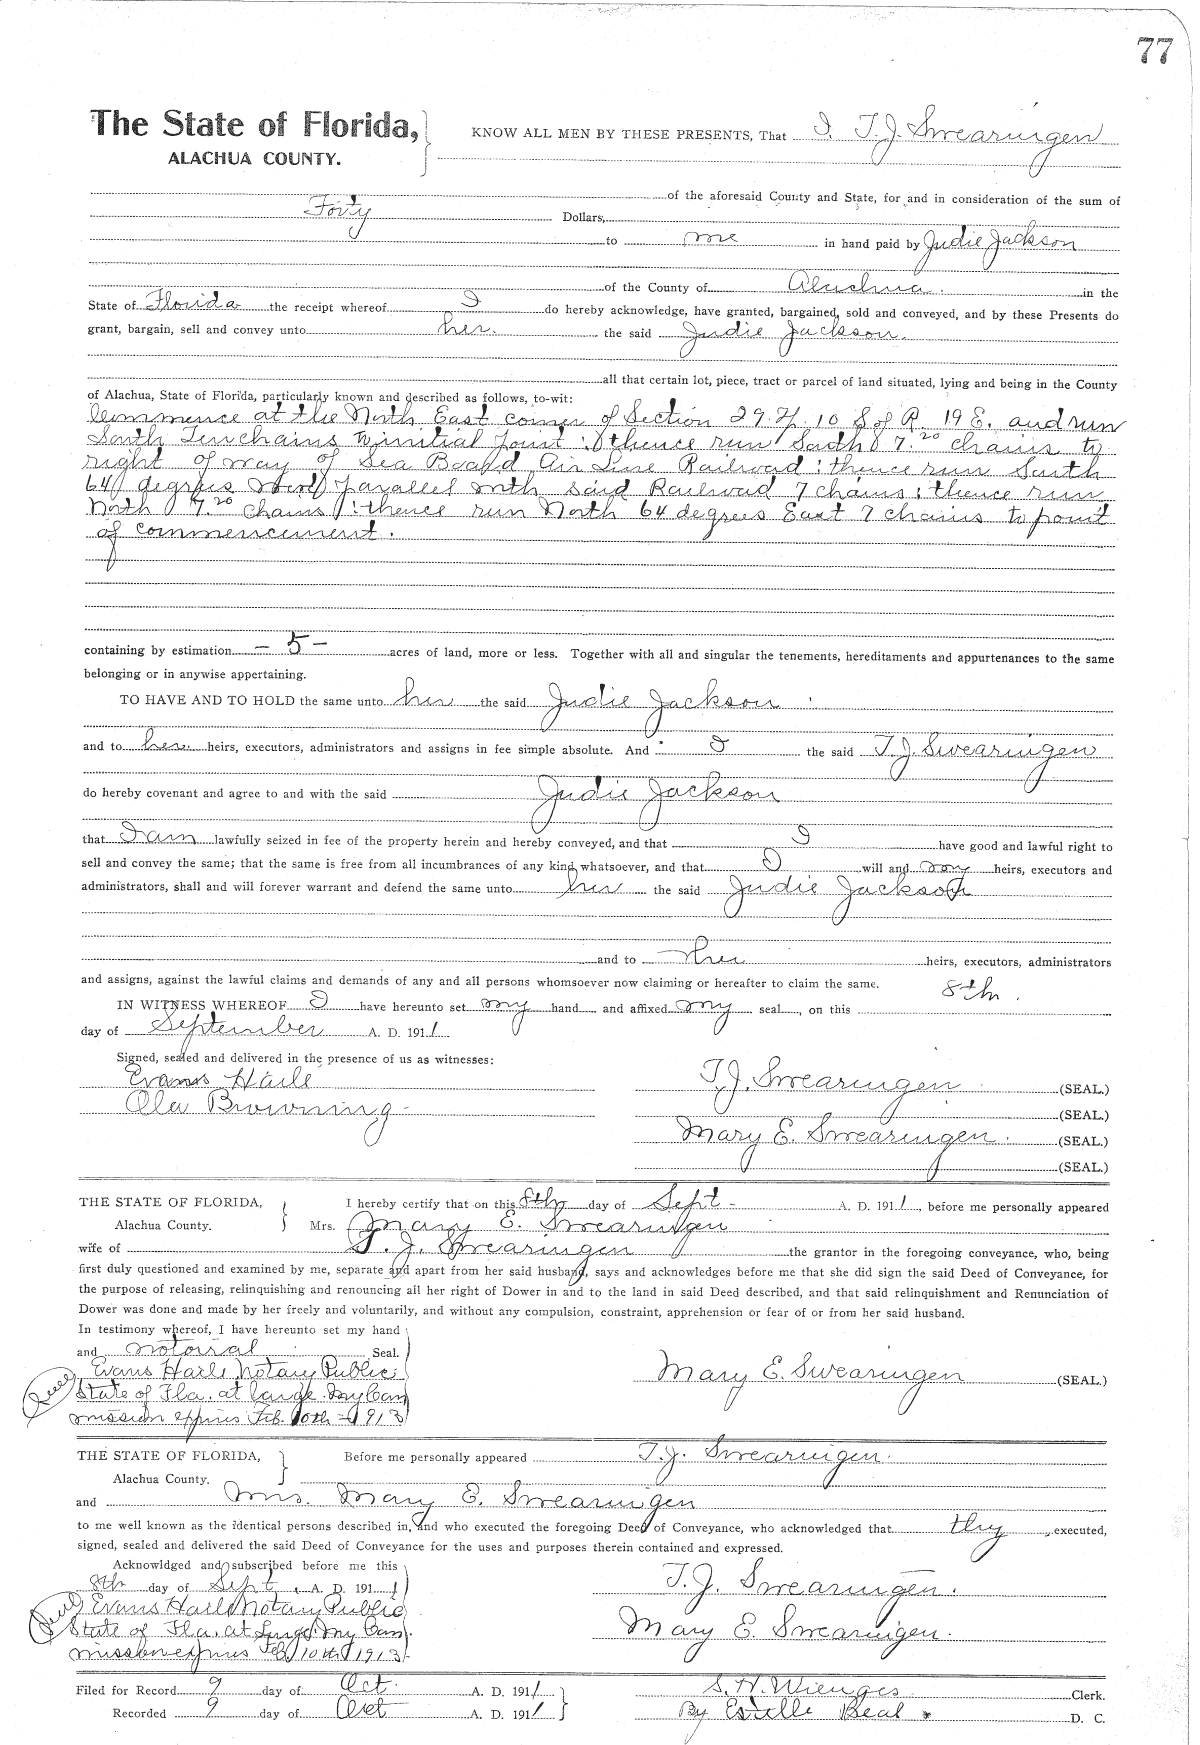 77
The State of Florida,
ALACHUA COUNTY.
KNOW ALL MEN BY THESE PRESENTS, That I, T. J. Swearingen
of the aforesaid County and State, for and in consideration of the sum of
Forty Dollars,
to me in hand paid by Judie Jackson
of the County of Alachua. in the
State of Florida the receipt whereof I do hereby acknowledge, have granted, bargained, sold and conveyed, and by these Presents do
grant, bargain, sell and convey unto her. the said Judie Jackson.
all that certain lot, piece, tract or parcel of land situated, lying and being in the County
of Alachua, State of Florida, particularly known and described as follows, to-wit:
Commence at the North East corner of Section 29. Tp. 10 S of R. 19 E. and run
South Ten chains to initial point: thence run South 7.20 chains to
right of way of Sea Board Air Line Railroad: thence run South
64 degrees West parallel with said Railroad 7 chains: thence run
North 7.20 chains: thence run North 64 degrees East 7 chains to point
of commencement.
containing by estimation - 5 - acres of land, more or less. Together with all and singular the tenements, hereditaments and appurtenances to the same
belonging or in anywise appertaining.
TO HAVE AND TO HOLD the same unto her the said Judie Jackson
and to her heirs, executors, administrators and assigns in fee simple absolute. And I the said T. J. Swearingen
do hereby covenant and agree to and with the said Judie Jackson
that I am lawfully seized in fee of the property herein and hereby conveyed, and that I have good and lawful right to
sell and convey the same; that the same is free from all incumbrances of any kind whatsoever, and that I will and my heirs, executors and
administrators, shall and will forever warrant and defend the same unto her the said Judie Jackson
and to her heirs, executors, administrators
and assigns, against the lawful claims and demands of any and all persons whomsoever now claiming or hereafter to claim the same.
IN WITNESS WHEREOF I have hereunto set my hand and affixed my seal, on this 8th.
day of September A. D. 1911
Signed, sealed and delivered in the presence of us as witnesses:
Evans Haile T. J. Swearingen (SEAL.)
Ola Browning (SEAL.)
Mary E. Swearingen. (SEAL.)
(SEAL.)
THE STATE OF FLORIDA, I hereby certify that on this 8th day of Sept - A. D. 1911, before me personally appeared
Alachua County. Mrs. Mary E. Swearingen
wife of T. J. Swearingen the grantor in the foregoing conveyance, who, being
first duly questioned and examined by me, separate and apart from her said husband, says and acknowledges before me that she did sign the said Deed of Conveyance, for
the purpose of releasing, relinquishing and renouncing all her right of Dower in and to the land in said Deed described, and that said relinquishment and Renunciation of
Dower was done and made by her freely and voluntarily, and without any compulsion, constraint, apprehension or fear of or from her said husband.
In testimony whereof, I have hereunto set my hand
and notorial Seal.
Evans Haile Notary Public
State of Fla. at large. My Com
mission expires Feb. 10th - 1913
Mary E. Swearingen (SEAL.)
THE STATE OF FLORIDA, Before me personally appeared T. J. Swearingen.
Alachua County.
and Mrs. Mary E. Swearingen
to me well known as the identical persons described in, and who executed the foregoing Deed of Conveyance, who acknowledged that they executed,
signed, sealed and delivered the said Deed of Conveyance for the uses and purposes therein contained and expressed.
Acknowldged and subscribed before me this
8th day of Sept. A. D. 1911 T. J. Swearingen.
Evans Haile Notary Public
State of Fla. at Large. My Com. Mary E. Swearingen.
mission expires Feb. 10th 1913-
Filed for Record 9 day of Oct. A. D. 1911 S. H. Wienges Clerk.
Recorded 9 day of Oct A. D. 1911 By Estelle Beal D. C.